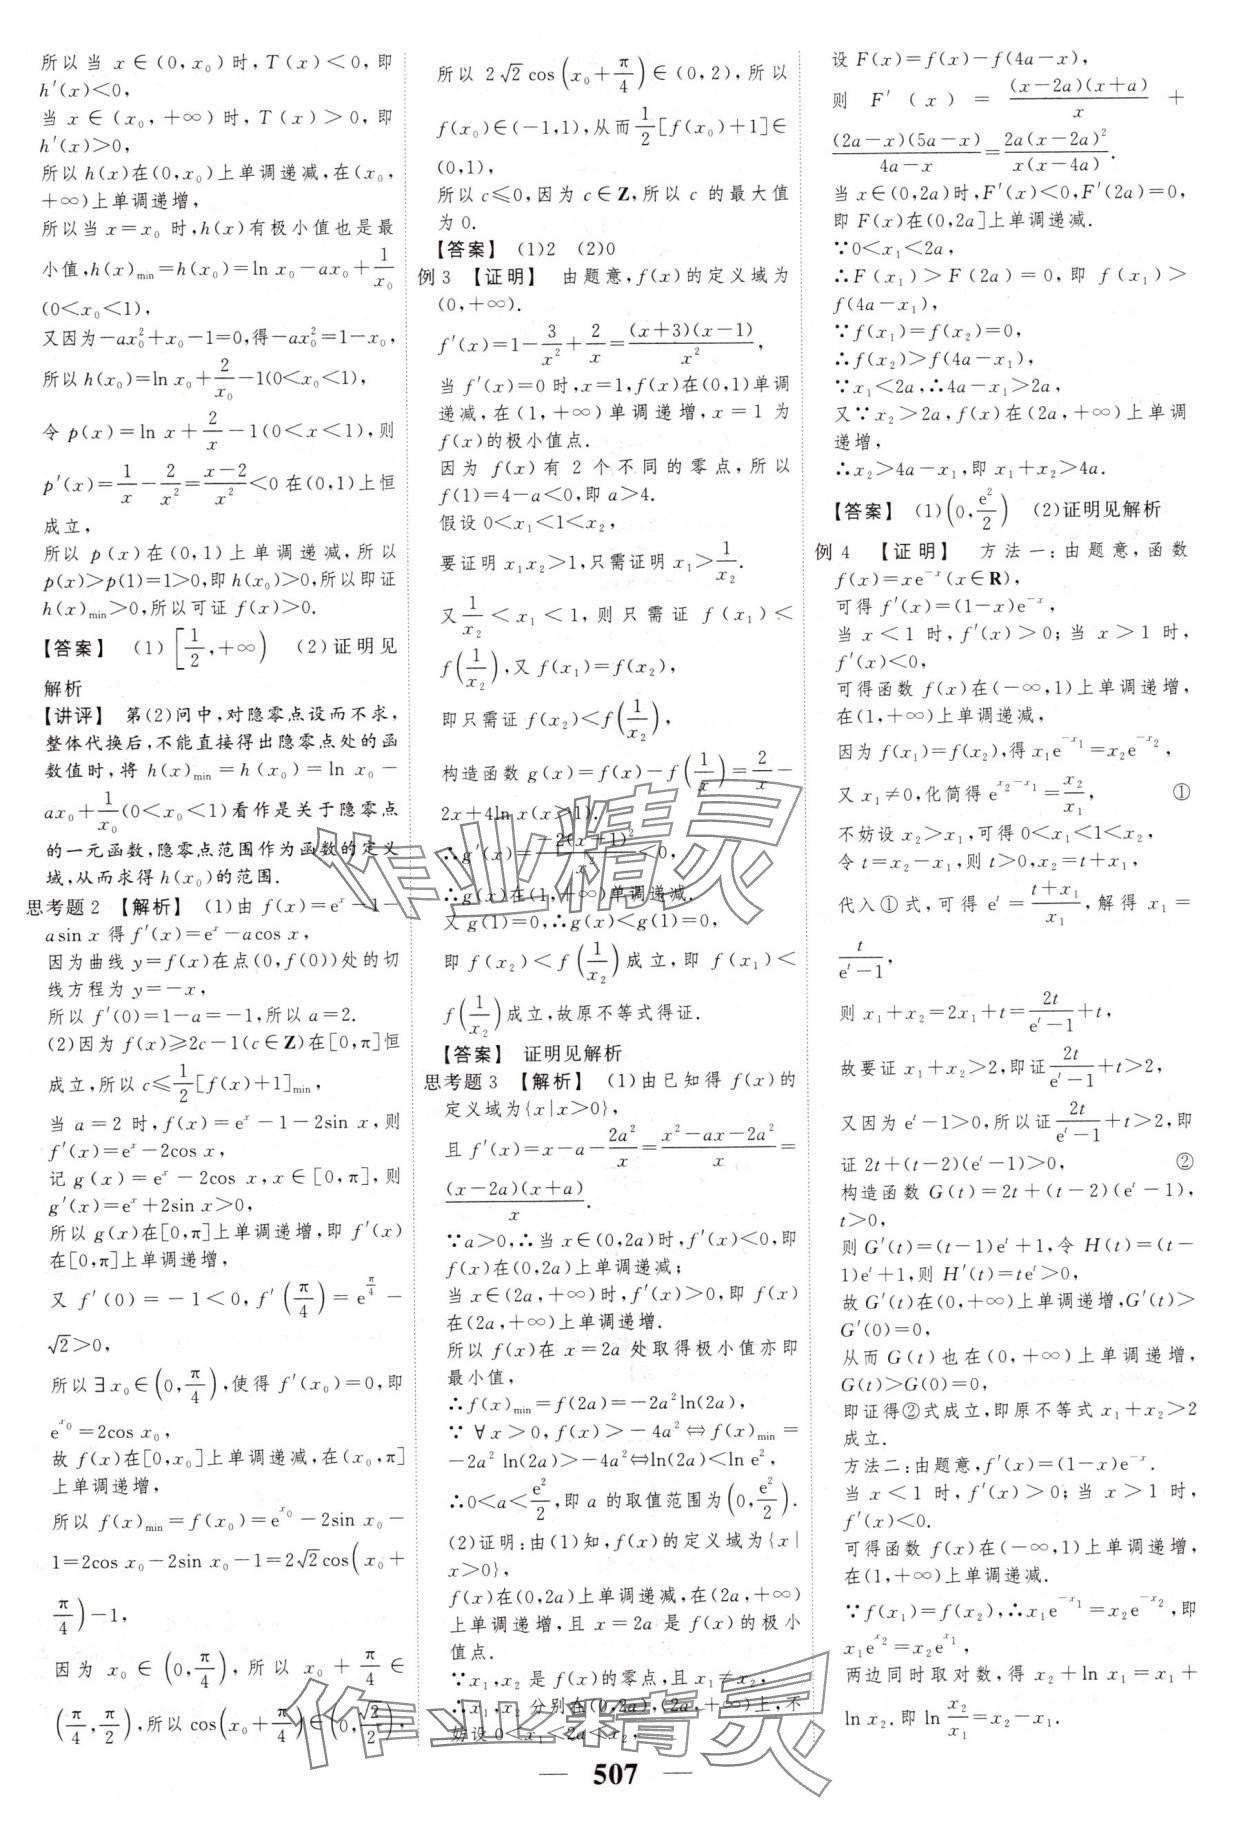 所以当 x∈(0,x₀)时,T(x)<0,即
h′(x)<0,
当 x∈(x₀,+∞)时,T(x)>0,即
h′(x)>0,
所以 h(x)在(0,x₀)上单调递减,在(x₀,
+∞)上单调递增,
所以当 x=x₀ 时,h(x)有极小值也是最
小值,h(x)min=h(x₀)=ln x₀-ax₀+1/x₀
(0<x₀<1),
又因为-ax₀²+x₀-1=0,得-ax₀²=1-x₀,
所以 h(x₀)=ln x₀+2/x₀-1(0<x₀<1),
令 p(x)=ln x+2/x-1(0<x<1),则
p′(x)=1/x-2/x²=(x-2)/x²<0 在(0,1)上恒
成立,
所以 p(x)在(0,1)上单调递减,所以
p(x)>p(1)=1>0,即 h(x₀)>0,所以即证
h(x)min>0,所以可证 f(x)>0.
【答案】 (1)[1/2,+∞) (2)证明见
解析
【讲评】 第(2)问中,对隐零点设而不求,
整体代换后,不能直接得出隐零点处的函
数值时,将 h(x)min=h(x₀)=ln x₀-
ax₀+1/x₀(0<x₀<1)看作是关于隐零点
的一元函数,隐零点范围作为函数的定义
域,从而求得 h(x₀)的范围.
思考题 2 【解析】 (1)由 f(x)=eˣ-1-
asin x 得 f′(x)=eˣ-acos x,
因为曲线 y=f(x)在点(0,f(0))处的切
线方程为 y=-x,
所以 f′(0)=1-a=-1,所以 a=2.
(2)因为 f(x)≥2c-1(c∈Z)在[0,π]恒
成立,所以 c≤1/2[f(x)+1]min,
当 a=2 时,f(x)=eˣ-1-2sin x,则
f′(x)=eˣ-2cos x,
记 g(x)=eˣ-2cos x,x∈[0,π],则
g′(x)=eˣ+2sin x>0,
所以 g(x)在[0,π]上单调递增,即 f′(x)
在[0,π]上单调递增,
又 f′(0)=-1<0,f′(π/4)=e^(π/4)-
√2>0,
所以∃x₀∈(0,π/4),使得 f′(x₀)=0,即
e^(x₀)=2cos x₀,
故 f(x)在[0,x₀]上单调递减,在(x₀,π]
上单调递增,
所以 f(x)min=f(x₀)=e^(x₀)-2sin x₀-
1=2cos x₀-2sin x₀-1=2√2cos(x₀+
π/4)-1,
因为 x₀∈(0,π/4),所以 x₀+π/4∈
(π/4,π/2),所以 cos(x₀+π/4)∈(0,√2/2),
所以 2√2cos(x₀+π/4)∈(0,2),所以
f(x₀)∈(-1,1),从而1/2[f(x₀)+1]∈
(0,1),
所以 c≤0,因为 c∈Z,所以 c 的最大值
为 0.
【答案】 (1)2 (2)0
例 3 【证明】 由题意,f(x)的定义域为
(0,+∞).
f′(x)=1-3/x²+2/x=(x+3)(x-1)/x²,
当 f′(x)=0 时,x=1,f(x)在(0,1)单调
递减,在(1,+∞)单调递增,x=1 为
f(x)的极小值点.
因为 f(x)有 2 个不同的零点,所以
f(1)=4-a<0,即 a>4.
假设 0<x₁<1<x₂,
要证明 x₁x₂>1,只需证明 x₁>1/x₂.
又1/x₂<x₁<1,则只需证 f(x₁)<
f(1/x₂),又 f(x₁)=f(x₂),
即只需证 f(x₂)<f(1/x₂),
构造函数 g(x)=f(x)-f(1/x)=2/x-
2x+4ln x(x>1).
∴g′(x)=-2(x+1)²/x²<0,
∴g(x)在(1,+∞)单调递减,
又 g(1)=0,∴g(x)<g(1)=0,
即 f(x₂)<f(1/x₂)成立,即 f(x₁)<
f(1/x₂)成立,故原不等式得证.
【答案】 证明见解析
思考题 3 【解析】 (1)由已知得 f(x)的
定义域为{x|x>0},
且 f′(x)=x-a-2a²/x=(x²-ax-2a²)/x=
(x-2a)(x+a)/x.
∵a>0,∴当 x∈(0,2a)时,f′(x)<0,即
f(x)在(0,2a)上单调递减;
当 x∈(2a,+∞)时,f′(x)>0,即 f(x)
在(2a,+∞)上单调递增.
所以 f(x)在 x=2a 处取得极小值亦即
最小值,
∴f(x)min=f(2a)=-2a²ln(2a),
∵∀x>0,f(x)>-4a²⇔f(x)min=
-2a²ln(2a)>-4a²⇔ln(2a)<ln e²,
∴0<a<e²/2,即 a 的取值范围为(0,e²/2).
(2)证明:由(1)知,f(x)的定义域为{x|
x>0},
f(x)在(0,2a)上单调递减,在(2a,+∞)
上单调递增,且 x=2a 是 f(x)的极小
值点.
∵x₁,x₂ 是 f(x)的零点,且 x₁≠x₂,
∴x₁,x₂ 分别在(0,2a),(2a,+∞)上,不
妨设 0<x₁<2a<x₂,
设 F(x)=f(x)-f(4a-x),
则 F′(x)=(x-2a)(x+a)/x+
(2a-x)(5a-x)/(4a-x)=2a(x-2a)²/(x(x-4a)).
当 x∈(0,2a)时,F′(x)<0,F′(2a)=0,
即 F(x)在(0,2a]上单调递减.
∵0<x₁<2a,
∴F(x₁)>F(2a)=0,即 f(x₁)>
f(4a-x₁),
∵f(x₁)=f(x₂)=0,
∴f(x₂)>f(4a-x₁),
∵x₁<2a,∴4a-x₁>2a,
又∵x₂>2a,f(x)在(2a,+∞)上单调
递增,
∴x₂>4a-x₁,即 x₁+x₂>4a.
【答案】 (1)(0,e²/2) (2)证明见解析
例 4 【证明】 方法一:由题意,函数
f(x)=xe⁻ˣ(x∈R),
可得 f′(x)=(1-x)e⁻ˣ,
当 x<1 时,f′(x)>0;当 x>1 时,
f′(x)<0,
可得函数 f(x)在(-∞,1)上单调递增,
在(1,+∞)上单调递减,
因为 f(x₁)=f(x₂),得 x₁e^(-x₁)=x₂e^(-x₂),
又 x₁≠0,化简得 e^(x₂-x₁)=x₂/x₁, ①
不妨设 x₂>x₁,可得 0<x₁<1<x₂,
令 t=x₂-x₁,则 t>0,x₂=t+x₁,
代入①式,可得 eᵗ=(t+x₁)/x₁,解得 x₁=
t/(eᵗ-1),
则 x₁+x₂=2x₁+t=2t/(eᵗ-1)+t,
故要证 x₁+x₂>2,即证2t/(eᵗ-1)+t>2,
又因为 eᵗ-1>0,所以证2t/(eᵗ-1)+t>2,即
证 2t+(t-2)(eᵗ-1)>0, ②
构造函数 G(t)=2t+(t-2)(eᵗ-1),
t>0,
则 G′(t)=(t-1)eᵗ+1,令 H(t)=(t-
1)eᵗ+1,则 H′(t)=teᵗ>0,
故 G′(t)在(0,+∞)上单调递增,G′(t)>
G′(0)=0,
从而 G(t)也在(0,+∞)上单调递增,
G(t)>G(0)=0,
即证得②式成立,即原不等式 x₁+x₂>2
成立.
方法二:由题意,f′(x)=(1-x)e⁻ˣ.
当 x<1 时,f′(x)>0;当 x>1 时,
f′(x)<0.
可得函数 f(x)在(-∞,1)上单调递增,
在(1,+∞)上单调递减.
∵f(x₁)=f(x₂),∴x₁e^(-x₁)=x₂e^(-x₂),即
x₁e^(x₂)=x₂e^(x₁),
两边同时取对数,得 x₂+ln x₁=x₁+
ln x₂.即 ln x₂/x₁=x₂-x₁.
作业精灵
作业精灵
507